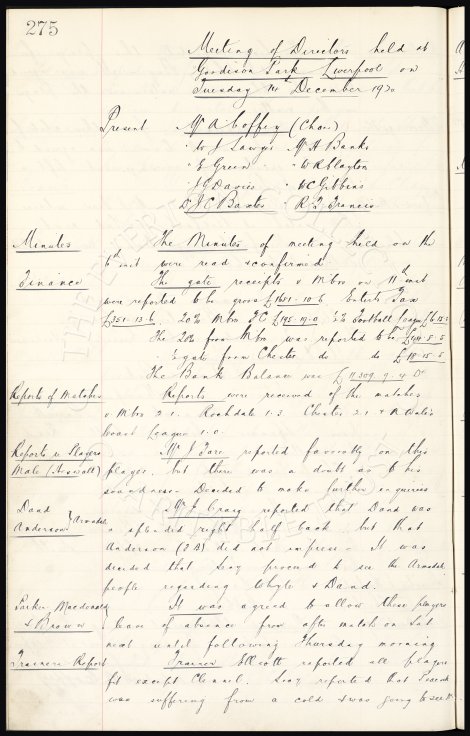 275
Meeting of Directors held at
Goodison Park Liverpool on
Tuesday December 1920
Present Mr A Coffey (Chair)
" W J Sawyer Mr H Banks
" E Green " W R Clayton
" J Davies " W C Gibbins
Dr J C Baxter " R L Francis
Minutes The Minutes of meeting held on the
6th inst were read & confirmed.
Finance The gate receipts v Mbro on 11th inst
were reported to be gross £1651-10-6 Enterts Tax
£351-13-6 20% Mbro F.C. £195-19-0 Football League
The 20% from Mbro was reported to be
" gate from Chester do do £18-15-5
The Bank Balance was £11,309-9-4
Reports of Matches Reports were received of the matches
v Mbro 2.1. Rochdale 1-3. Chester 2.1 & N Wales
Coast League 1.0.
Reports re Players Mr J Fare reported favorably on this
Male player, but there was a doubt as to his
soundness - Decided to make further inquiries
Dand Mr J Craig reported that Dand was
Anderson } Armadale a splendid right half back but that
Anderson did not impress - It was
decided that Secy proceed to see the Armadale
people regarding Whyte & Dand.
Parker, Macdonald It was agreed to allow these players
& Brown leave of absence from after match on Sat
next until following Thursday morning
Trainers Report Trainer Ellcott reported all players
fit except Clennell. Secy reported that Peacock
was suffering from a cold & was going to see Dr